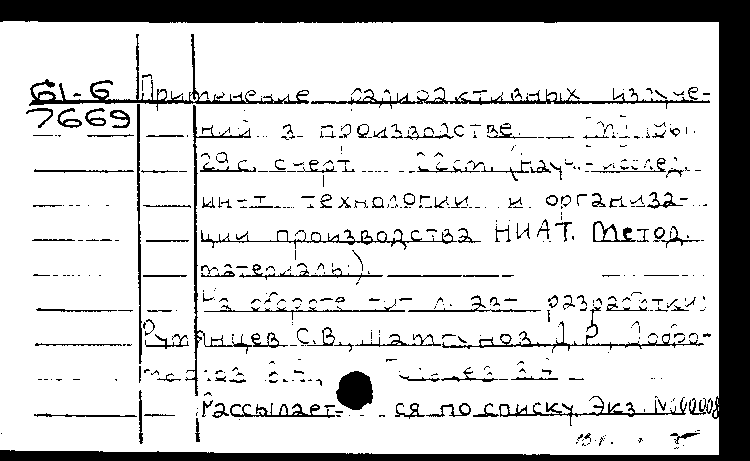 61-6 Применение радиоактивных излуче-
7669 ний в производстве. [М] 1961.
29 с. с черт. 22 см. (Науч.-исслед.
ин-т технологии и организа-
ции производства НИАТ. Метод.
материалы).
На обороте тит. л. авт. разработки:
Румянцев С.В., Д.Р., Добро-
Рассылает- ся по списку. Экз. №00008